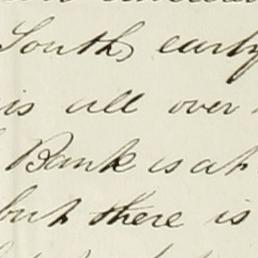 South, early
is all over
Bank is at
but there is